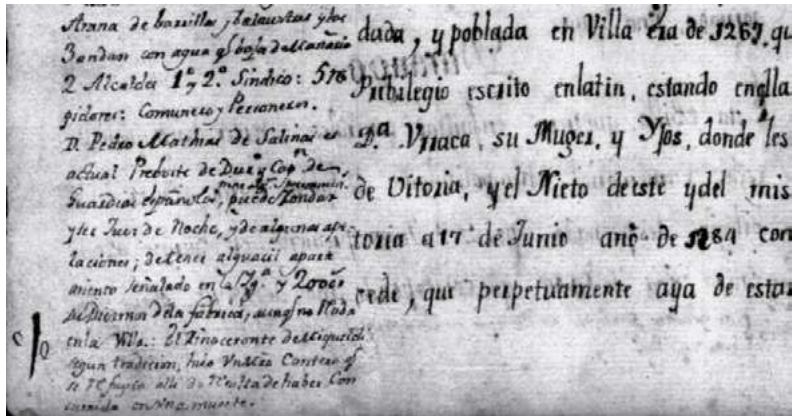 Arana de barrillas, balaustas y los
Bandan con agua qe baja de Mañaria
2 Alcaldes 1º y 2º. Sindico: 5
gidores: Comuneros y Personeros.
D. Pedro Mathias de Salinas es
actual Preboste de Durº y Capn de
Guardias españolas, puede Rondar
y ser Juez de Noche, y de algunas ape
laciones; detener alguacil
amiento señalado en la Ygª. y 200
de la fabrica, aunqe no Rada
en la Villa. El Rinoceronte de Miqueldi
segun tradicion, hizo Cantero qe
se alli de de haber Com
una muerte.
dada, y poblada en Villa era de 1267. qu
Pribilegio escrito enlatin, estando enella
D.ª Vrraca, su Muger, y Yjos, donde les
de Vitoria, y el Nieto deeste ydel mis
toria a 17 de Junio año de 1284 con
cede, que perpetuamente aya de estar